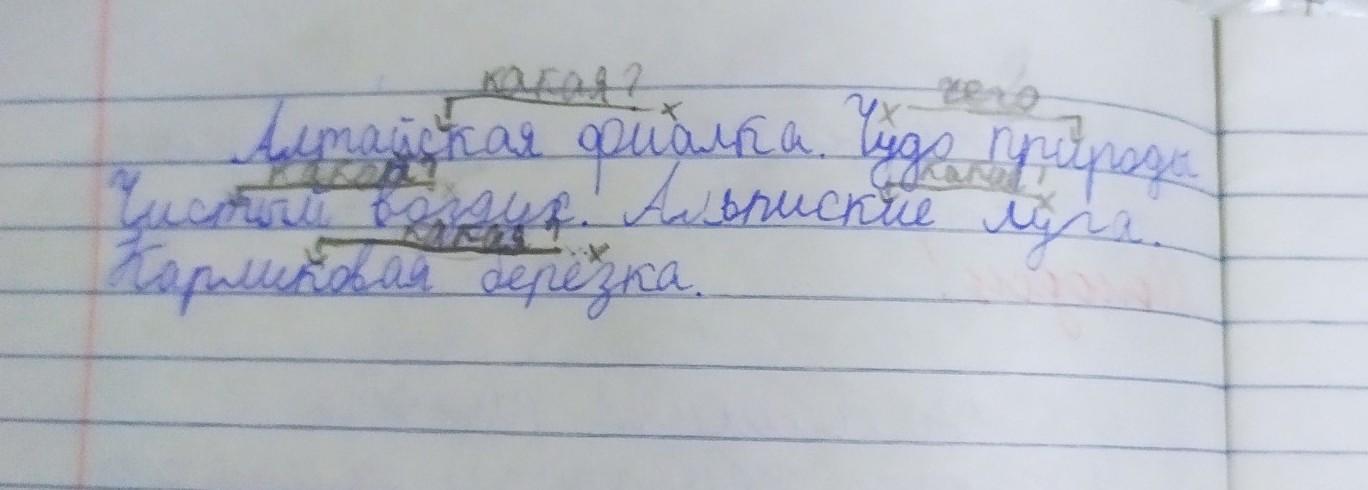 какая? чего
Алтайская фиалка. Чудо природы
какая? какая?
Чистый воздух. Альпиские луга.
какая?
Карликовая берёзка.